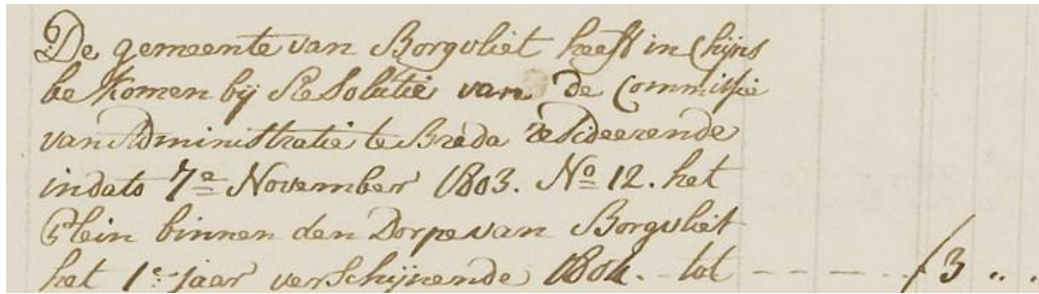 De gemeente van Borgvliet heeft in Chijns
bekomen bij Resolutie van de Commissie
van Administratie te Breda resideerende
in dato 7e November 1803. No 12. het
Plein binnen den Dorpe van Borgvliet
het 1e jaar verschijnende 1804. tot - - - - - f 3 .. .